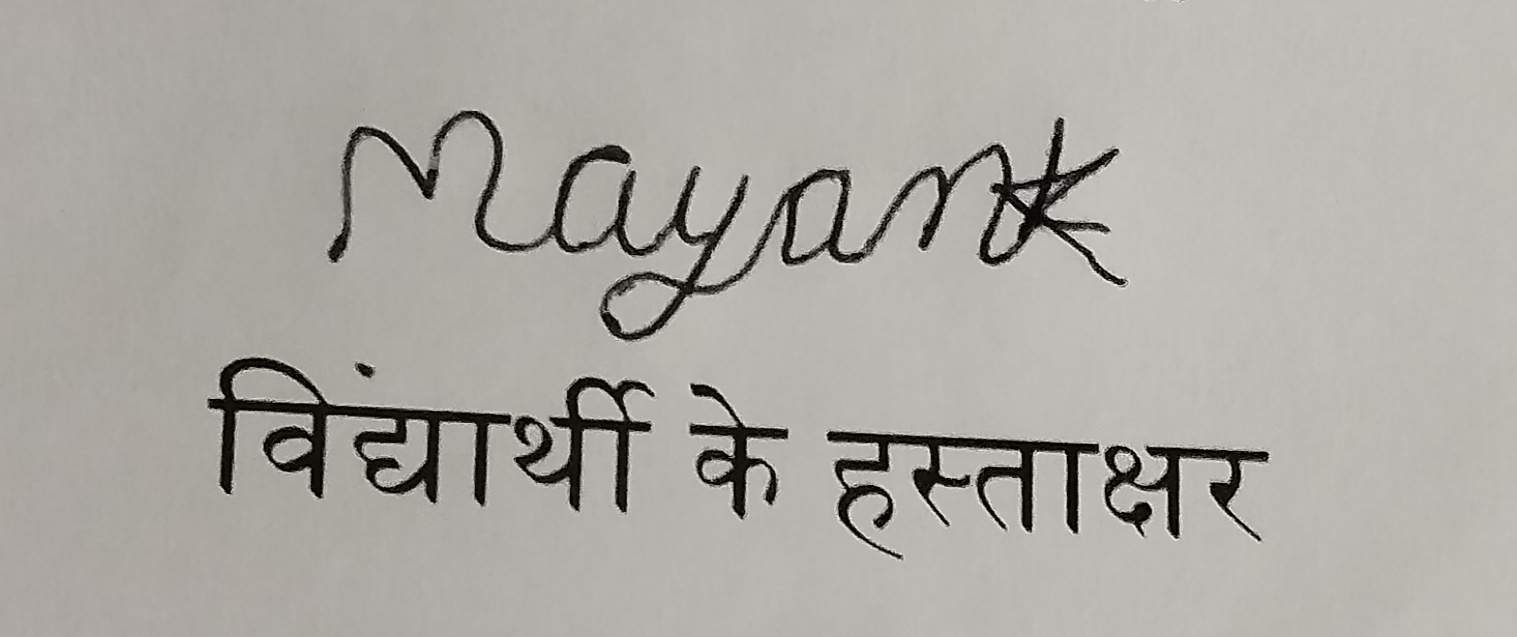 Mayank
विंद्यार्थी के हस्ताक्षर